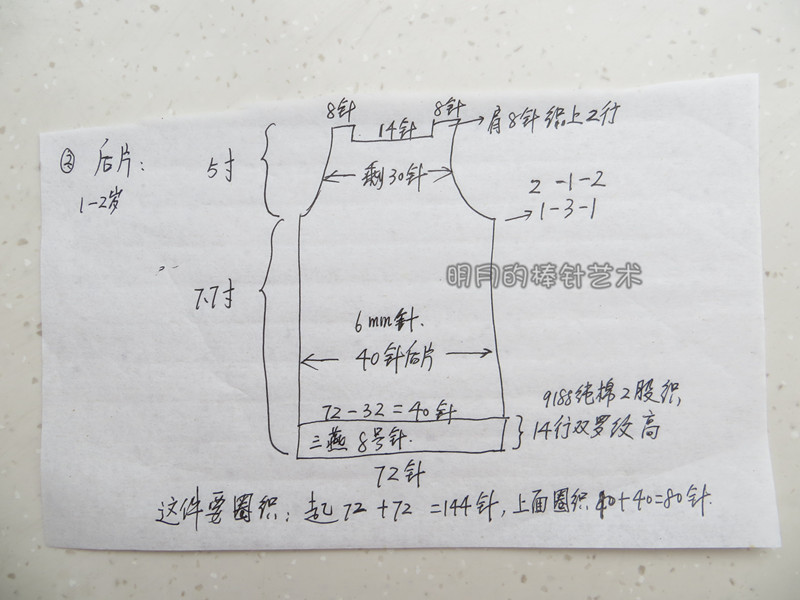 8针 8针
14针 → 肩8针织上2行
② 后片:
5寸
剩30针
1-2岁
2-1-2
1-3-1
明月的棒针艺术
7.7寸
6mm针.
40针后片
9188纯棉2股织,
72-32=40针
14行双罗纹高
三燕8号针.
72针
这件要圈织: 起72+72=144针, 上面圈织40+40=80针.